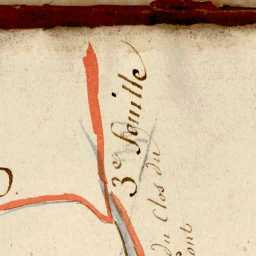 3.e feuille
du Clos du